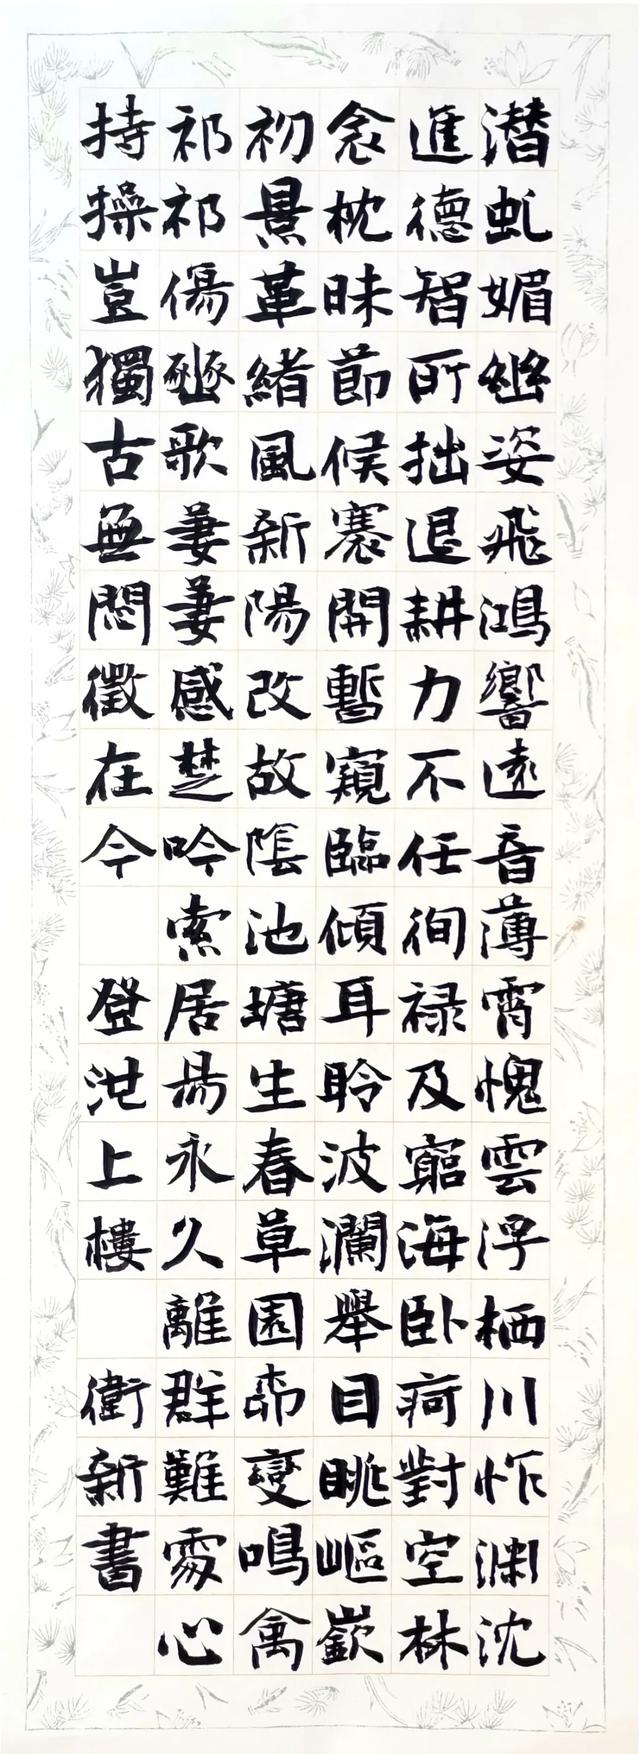 潜虬媚幽姿飛鴻響遠音薄霄愧雲浮栖川怍渊沈
進德智所拙退耕力不任徇禄及窮海卧疴對空林
衾枕昧節候褰開暫窺臨傾耳聆波瀾舉目眺嶇嶔
初景革緒風新陽改故陰池塘生春草園柳變鳴禽
祁祁傷豳歌萋萋感楚吟索居易永久離群難處心
持操豈獨古無悶徵在今 登池上樓 衛新書